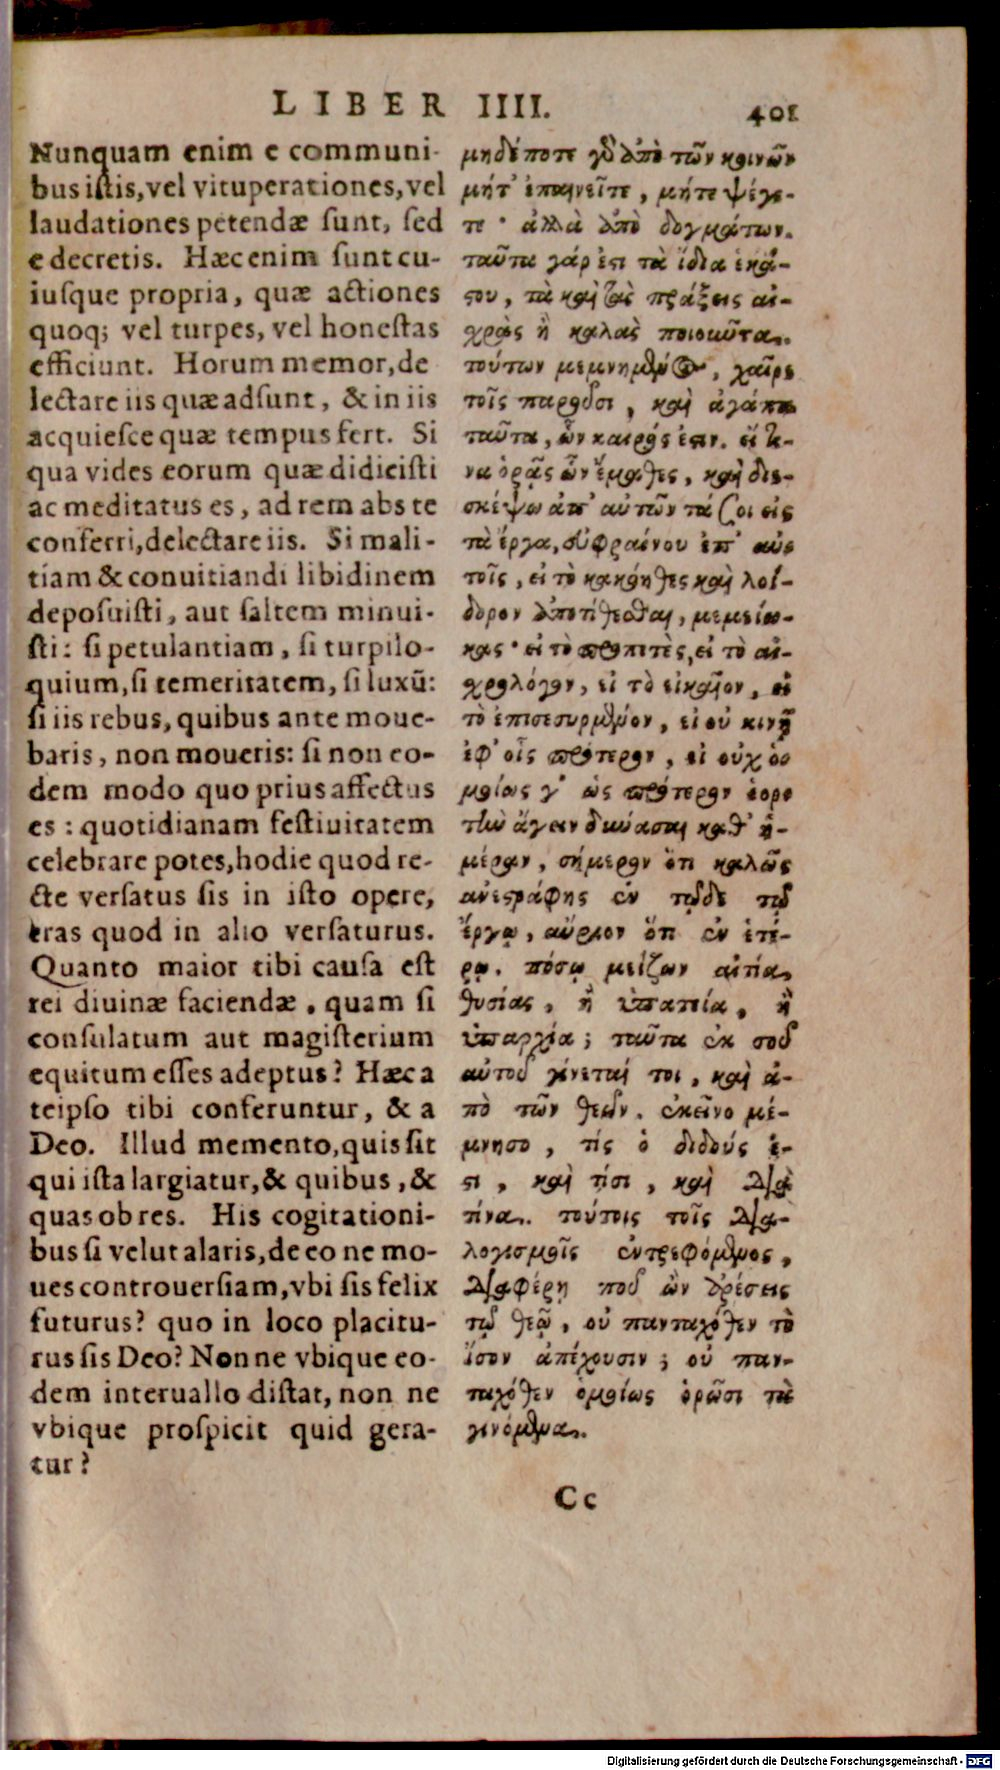 LIBER IIII. 401
Nunquam enim e communi-
bus istis, vel vituperationes, vel
laudationes petendæ sunt, sed
e decretis. Hæc enim sunt cu-
iusque propria, quæ actiones
quoq; vel turpes, vel honestas
efficiunt. Horum memor, de
lectare iis quæ adsunt, & in iis
acquiesce quæ tempus fert. Si
qua vides eorum quæ didicisti
ac meditatus es, ad rem abs te
conferri, delectare iis. Si mali-
tiam & conuitiandi libidinem
deposuisti, aut saltem minui-
sti: si petulantiam, si turpilo-
quium, si temeritatem, si luxũ:
si iis rebus, quibus ante moue-
baris, non moueris: si non eo-
dem modo quo prius affectus
es: quotidianam festiuitatem
celebrare potes, hodie quod re-
cte versatus sis in isto opere,
cras quod in alio versaturus.
Quanto maior tibi causa est
rei diuinæ faciendæ, quam si
consulatum aut magisterium
equitum esses adeptus? Hæc a
teipso tibi conferuntur, & a
Deo. Illud memento, quis sit
qui ista largiatur, & quibus, &
quas ob res. His cogitationi-
bus si velut alaris, de eo ne mo-
ues controuersiam, vbi sis felix
futurus? quo in loco placitu-
rus sis Deo? Nonne vbique eo-
dem interuallo distat, non ne
vbique prospicit quid gera-
tur?
μηδέποτε γὸ ἀπὸ τῶν κοινῶν
μήτ' ἐπαινεῖτε, μήτε ψέγε-
τε· ἀλλὰ ἀπὸ δογμάτων.
ταῦτα γάρ ἐστι τὰ ἴδια ἑκά-
στου, τὰ καὶ τὰς πράξεις αἰ-
χρὰς ἢ καλὰς ποιοῦντα.
τούτων μεμνημένος, χαῖρε
τοῖς παροῦσι, καὶ ἀγάπα
ταῦτα, ὧν καιρός ἐστιν. εἴ τι-
να ὁρᾷς ὧν ἔμαθες, καὶ διε-
σκέψω ἀπ' αὐτῶν τά σοι εἰς
τὰ ἔργα, εὐφραίνου ἐπ' αὐ
τοῖς, εἰ τὸ κακόηθες καὶ λοί-
δορον ἀποτέθεισαι, μεμείω-
κας· εἰ τὸ προπιτὲς, εἰ τὸ αἰ-
χρολόγον, εἰ τὸ εἰκαῖον, εἰ
τὸ ἐπισεσυρμένον, εἰ οὐ κινῇ
ἐφ' οἷς πρότερον, εἰ οὐχ ὁ
μοίως γ' ὡς πρότερον ἑορ
τὴν ἄγειν δύνασαι καθ' ἡ-
μέραν, σήμερον ὅτι καλῶς
ἀνεστράφης ἐν τῷδε τῷ
ἔργῳ, αὔριον ὅτι ἐν ἑτέ-
ρῳ. πόσῳ μείζων αἰτία
θυσίας, ἢ ὑπατεία, ἢ
ὑπαρχία; ταῦτα ἐκ σοῦ
αὐτοῦ γίνεταί τοι, καὶ ἀ-
πὸ τῶν θεῶν. ἐκεῖνο μέ-
μνησο, τίς ὁ διδούς ἐ-
στι, καὶ τίσι, καὶ διὰ
τίνα. τούτοις τοῖς δια-
λογισμοῖς ἐντρεφόμενος,
διαφέρῃ ποῦ ὢν ἀρέσεις
τῷ θεῷ, οὐ πανταχόθεν τὸ
ἴσον ἀπέχουσιν; οὐ παν-
ταχόθεν ὁμοίως ὁρῶσι τὰ
γινόμενα.
Cc
Digitalisierung gefördert durch die Deutsche Forschungsgemeinschaft - DFG